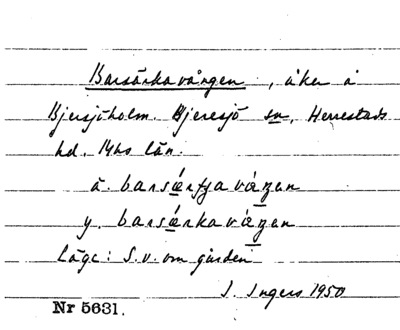 Barsärkavången, åker å
Bjersjöholm. Bjeresjö sn, Herrestads
hd. Mhs län.
ä. barsǽrtjaváŋen
y. barsǽrkaváŋen
Läge: S.v. om gården
I. Ingers 1950
Nr 5631.